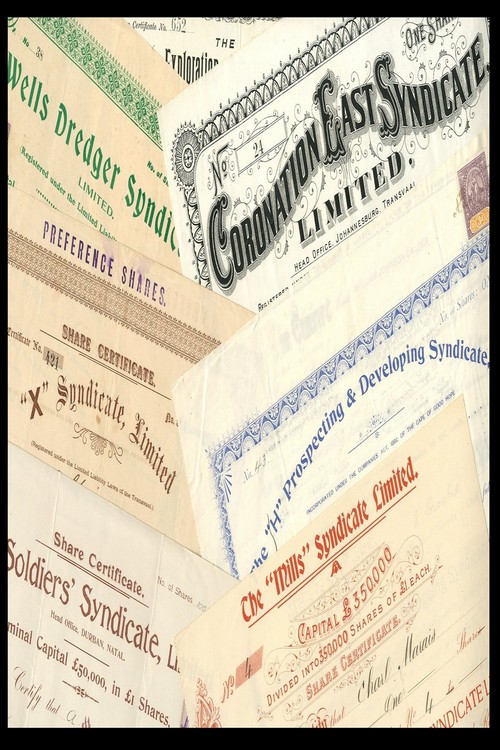 Certificate No. 652
THE
Exploration
No. 38
Wells Dredger Syndic
No. of S
LIMITED.
(Registered under the Limited Liabi
ONE SHAR
No. 21
CORONATION EAST SYNDICATE
LIMITED.
HEAD OFFICE, JOHANNESBURG, TRANSVAAL
REGISTERED
PREFERENCE SHARES.
SHARE CERTIFICATE.
Certificate No. 421
No.
"X" Syndicate, Limited
(Registered under the Limited Liability Laws of the Transvaal.)
No. of Shares
No. 43
The "H" Prospecting & Developing Syndicate,
INCORPORATED UNDER THE COMPANIES ACT, 1892, OF THE CAPE OF GOOD HOPE
Share Certificate.
No. of Shares
Soldiers' Syndicate, Li
Head Office, DURBAN, NATAL.
minal Capital £50,000, in £1 Shares,
Certify that
The "Mills" Syndicate Limited.
CAPITAL £350,000
DIVIDED INTO 350000 SHARES OF £1 EACH.
SHARE CERTIFICATE.
No 4
that Charl Marais
One Share
No 4
THE "MILLS" SYNDICATE LIMITED